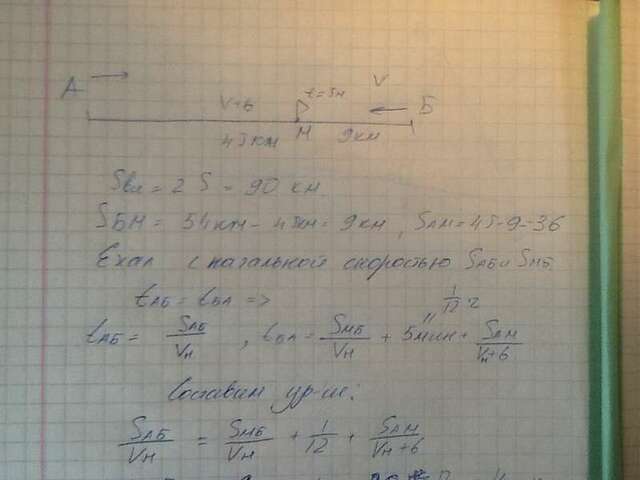 А → V+6 t=5м V ← Б
45км М 9км
Sвел = 2S = 90 км
SБМ = 54км - 45км = 9км, SАМ = 45-9=36
Ехал с начальной скоростью SАБ и SМБ
tАБ = tБА => 1/12 ч
tАБ = SАБ/Vн , tБА = SМБ/Vн + 5мин + SАМ/Vн+6
Составим ур-ие:
SАБ/Vн = SМБ/Vн + 1/12 + SАМ/Vн+6